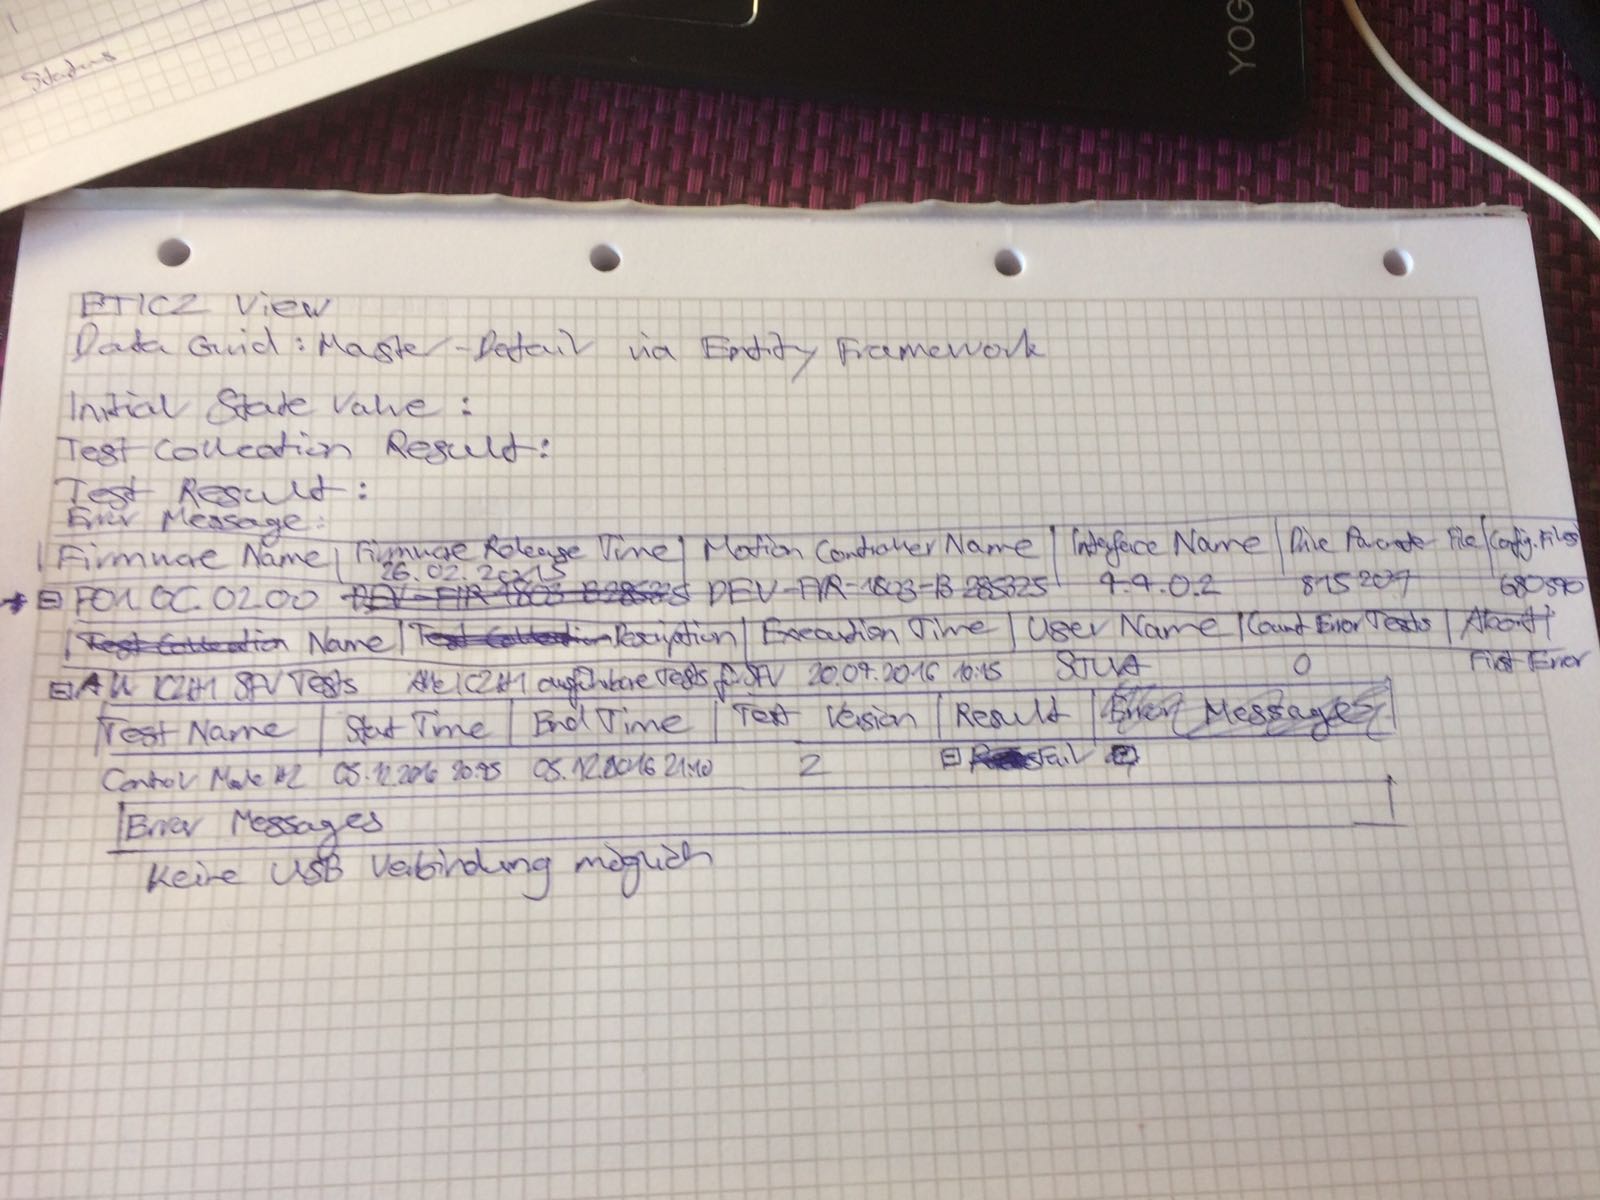 YOG
ETIC2 View
Data Guid: Master-Detail via Entity Framework
Initial State Value:
Test Collection Result:
Test Result:
Error Message:
Firmware Name | Firmware Release Time | Motion Controller Name | Interface Name | Drive Parameter File | Config. Files
26.02.2015
F01.0C.02.00 DEV-FIR-1803-B-285325 DEV-FIR-1803-B-285325 4.4.0.2 815207
Test Collection Name | Test Collection Description | Execution Time | User Name | Count Error Tests | Abort
All IC2H1 SFV Tests Alle IC2H1 Tests f. SFV 20.07.2016 10:15 STUA 0 First Error
Test Name | Start Time | End Time | Test Version | Result | Error Messages
Control Mode 05.12.2016 05.12.2016 21:10 2 Fail
Error Messages
Keine USB Verbindung möglich